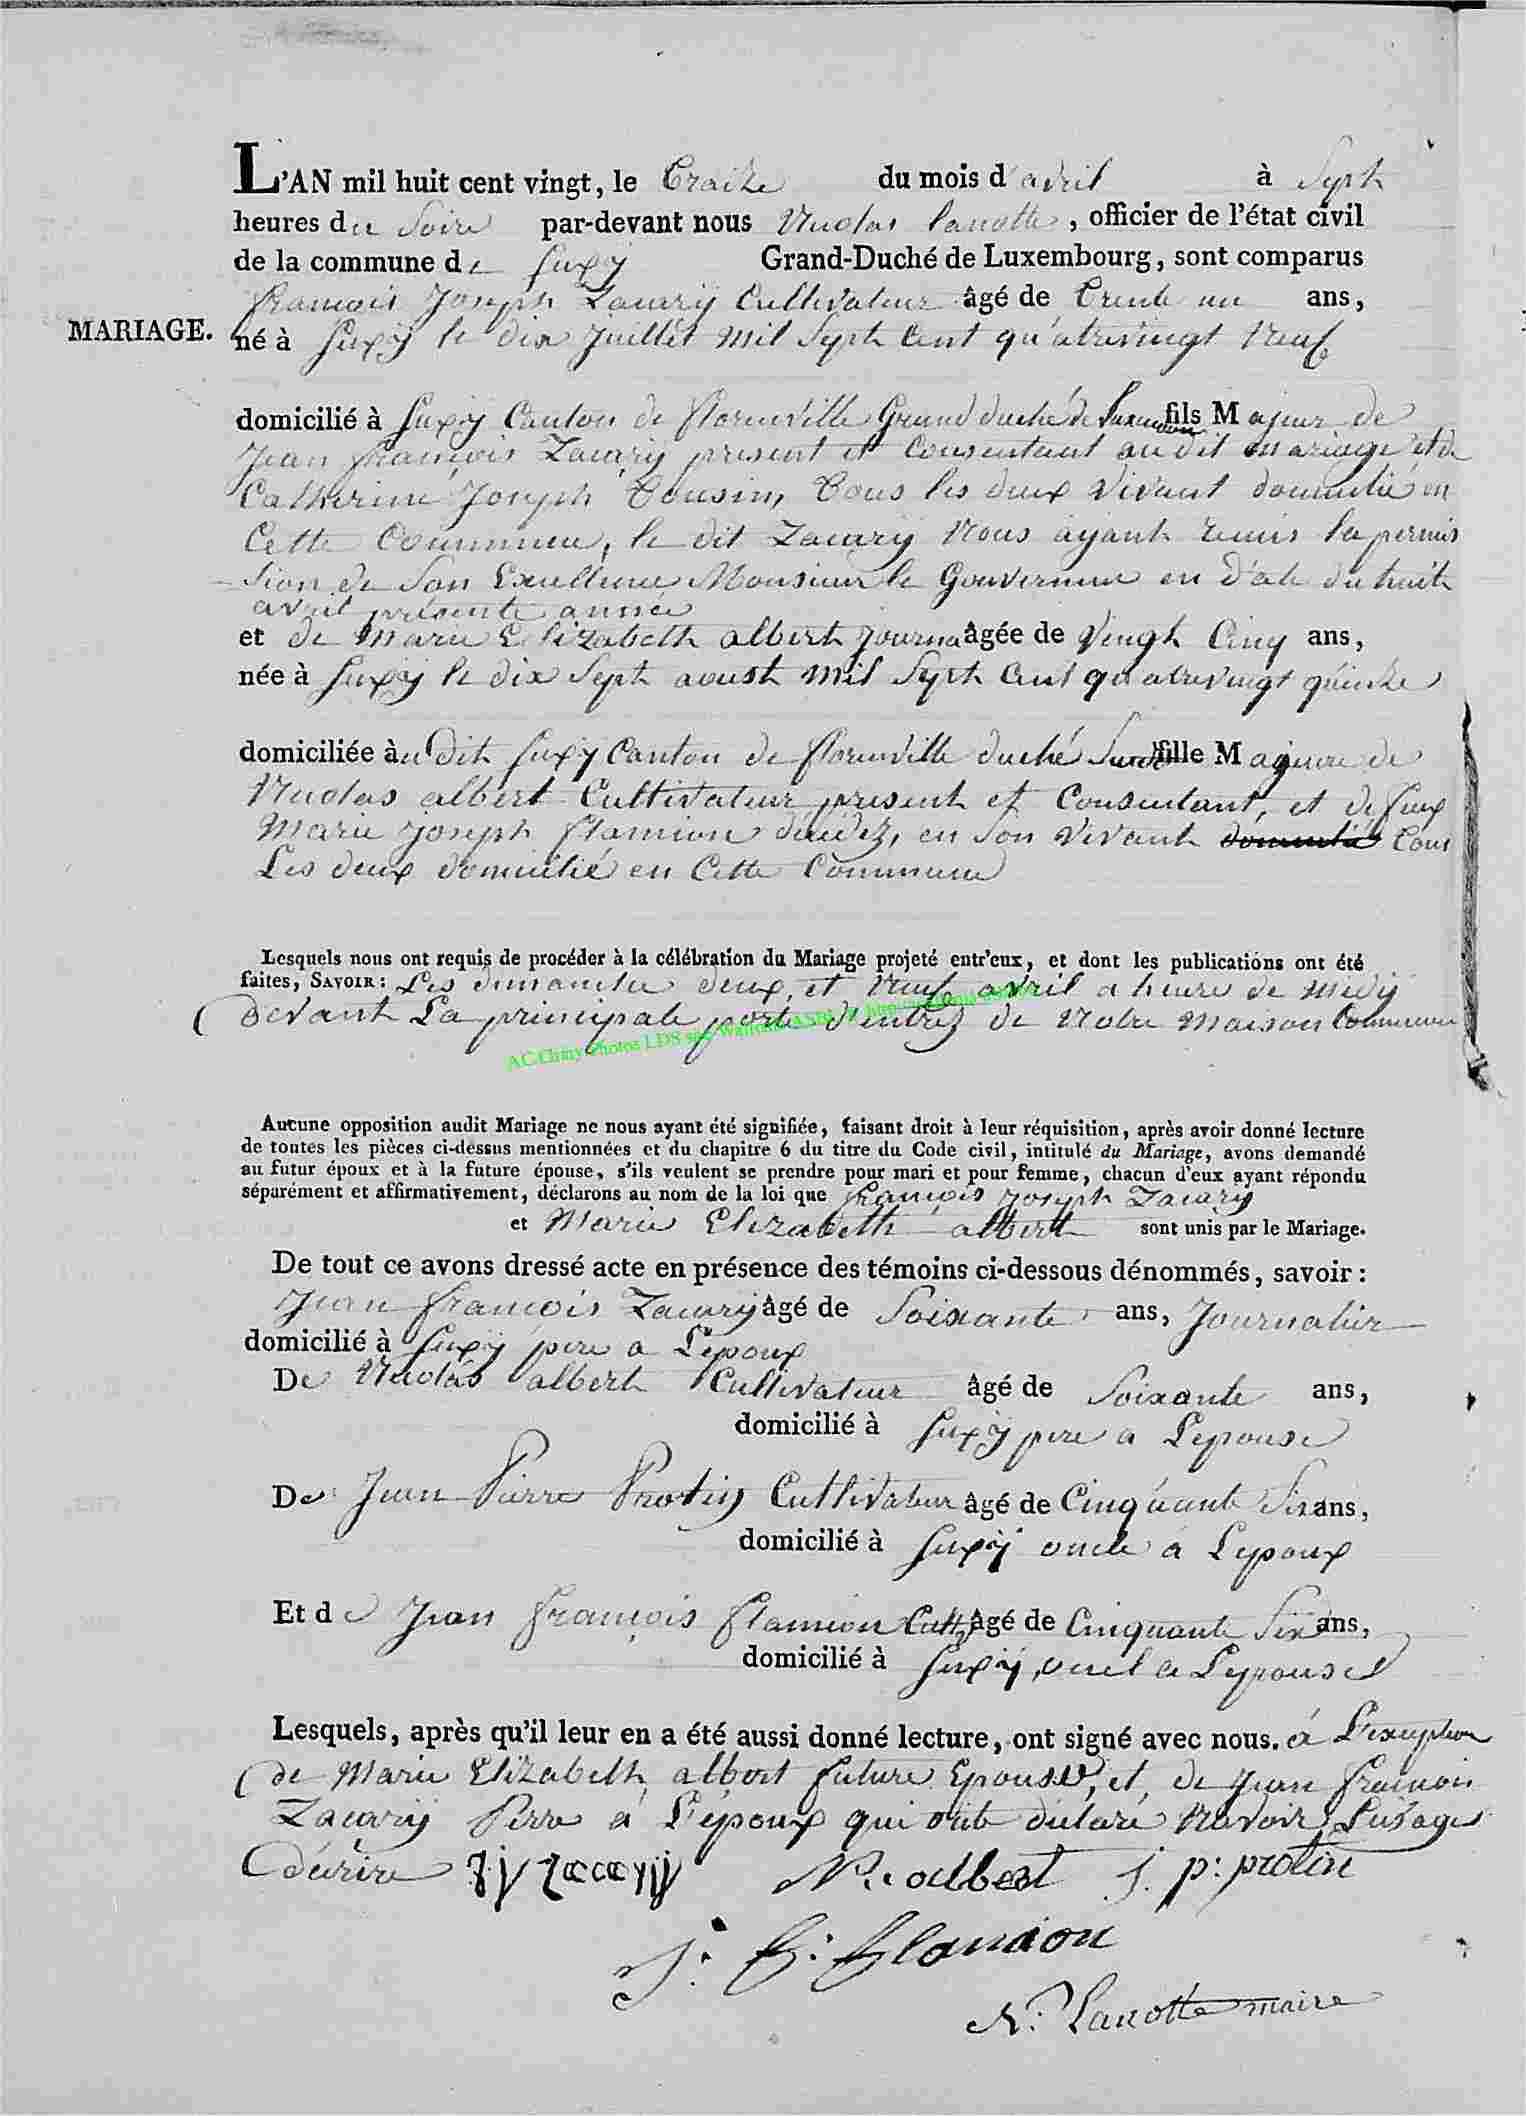 L'AN mil huit cent vingt, le Traize du mois d'avril à Sept
heures du Soire par-devant nous Nicolas Lanotte, officier de l'état civil
de la commune de Suxÿ Grand-Duché de Luxembourg, sont comparus
françois Joseph Zacarÿ Cultivateur âgé de Trente un ans,
MARIAGE. né à Suxÿ le dix Juillet mil Sept Cent quatrevingt Neuf
domicilié à Suxÿ Canton de florenville Grand duché de fils Majeur de
Jean françois Zacarÿ present et Consentant au dit mariage et de
Catherine Joseph Cousin, Tous les deux Vivant domicilié en
Cette Commune, le dit Zacarÿ Nous ayant remis la permis
sion de Son Excellence Monsieur le Gouverneur en date du huit
avril présente année
et de Marie Elizabeth albert Journa âgée de Vingt Cinq ans,
née à Suxÿ le dix Sept aoust mil Sept Cent quatrevingt quinze
domiciliée àu dit Suxÿ Canton de florenville duché fille Majeure de
Nicolas albert Cultivateur present et Consentant, et de feux
Marie Joseph flamion décédez, en Son Vivant domicilié Tous
Les deux domicilié en Cette Commune
Lesquels nous ont requis de procéder à la célébration du Mariage projeté entr'eux, et dont les publications ont été
faites, SAVOIR: Les dimanche deux et Neuf avril a heure de midÿ
devant La principale porte d'entrez de Notre Maison Commune
AC Chiny Photos LDS
Aucune opposition audit Mariage ne nous ayant été signifiée, faisant droit à leur réquisition, après avoir donné lecture
de toutes les pièces ci-dessus mentionnées et du chapitre 6 du titre du Code civil, intitulé du Mariage, avons demandé
au futur époux et à la future épouse, s'ils veulent se prendre pour mari et pour femme, chacun d'eux ayant répondu
séparément et affirmativement, déclarons au nom de la loi que françois Joseph Zacarÿ
et Marie Elizabeth albert sont unis par le Mariage.
De tout ce avons dressé acte en présence des témoins ci-dessous dénommés, savoir:
Jean françois Zacarÿ âgé de Soixante ans, Journalier
domicilié à Suxÿ pere a L'époux
De Nicolas albert Cultivateur âgé de Soixante ans,
domicilié à Suxÿ pere a L'epouse
De Jean Pierre Protin Cultivateur âgé de Cinquante Six ans,
domicilié à Suxÿ oncle a L'epoux
Et de Jean françois flamion Cult âgé de Cinquante Six ans,
domicilié à Suxÿ, oncl a L'epouse
Lesquels, après qu'il leur en a été aussi donné lecture, ont signé avec nous. à L'exception
de Marie Elizabeth albert future Epouse, et de Jean françois
Zacarÿ Perre a L'époux qui ont déclaré Navoir L'usage
décrire fj zacarÿ N: albert j. p: protin
J: f: flamion
N: Lanotte maire